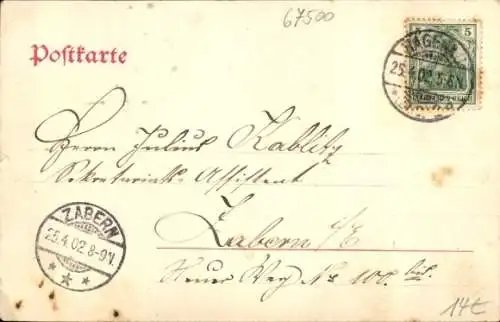 67500
Postkarte
5
HAGEN
25.4.02.5-6N.
Herrn Julius Kablitz
Sekretariats-Assistent
Zabern i/E
Neuer Weg No 100. bis.
ZABERN
25.4.02 8-9N.
14€